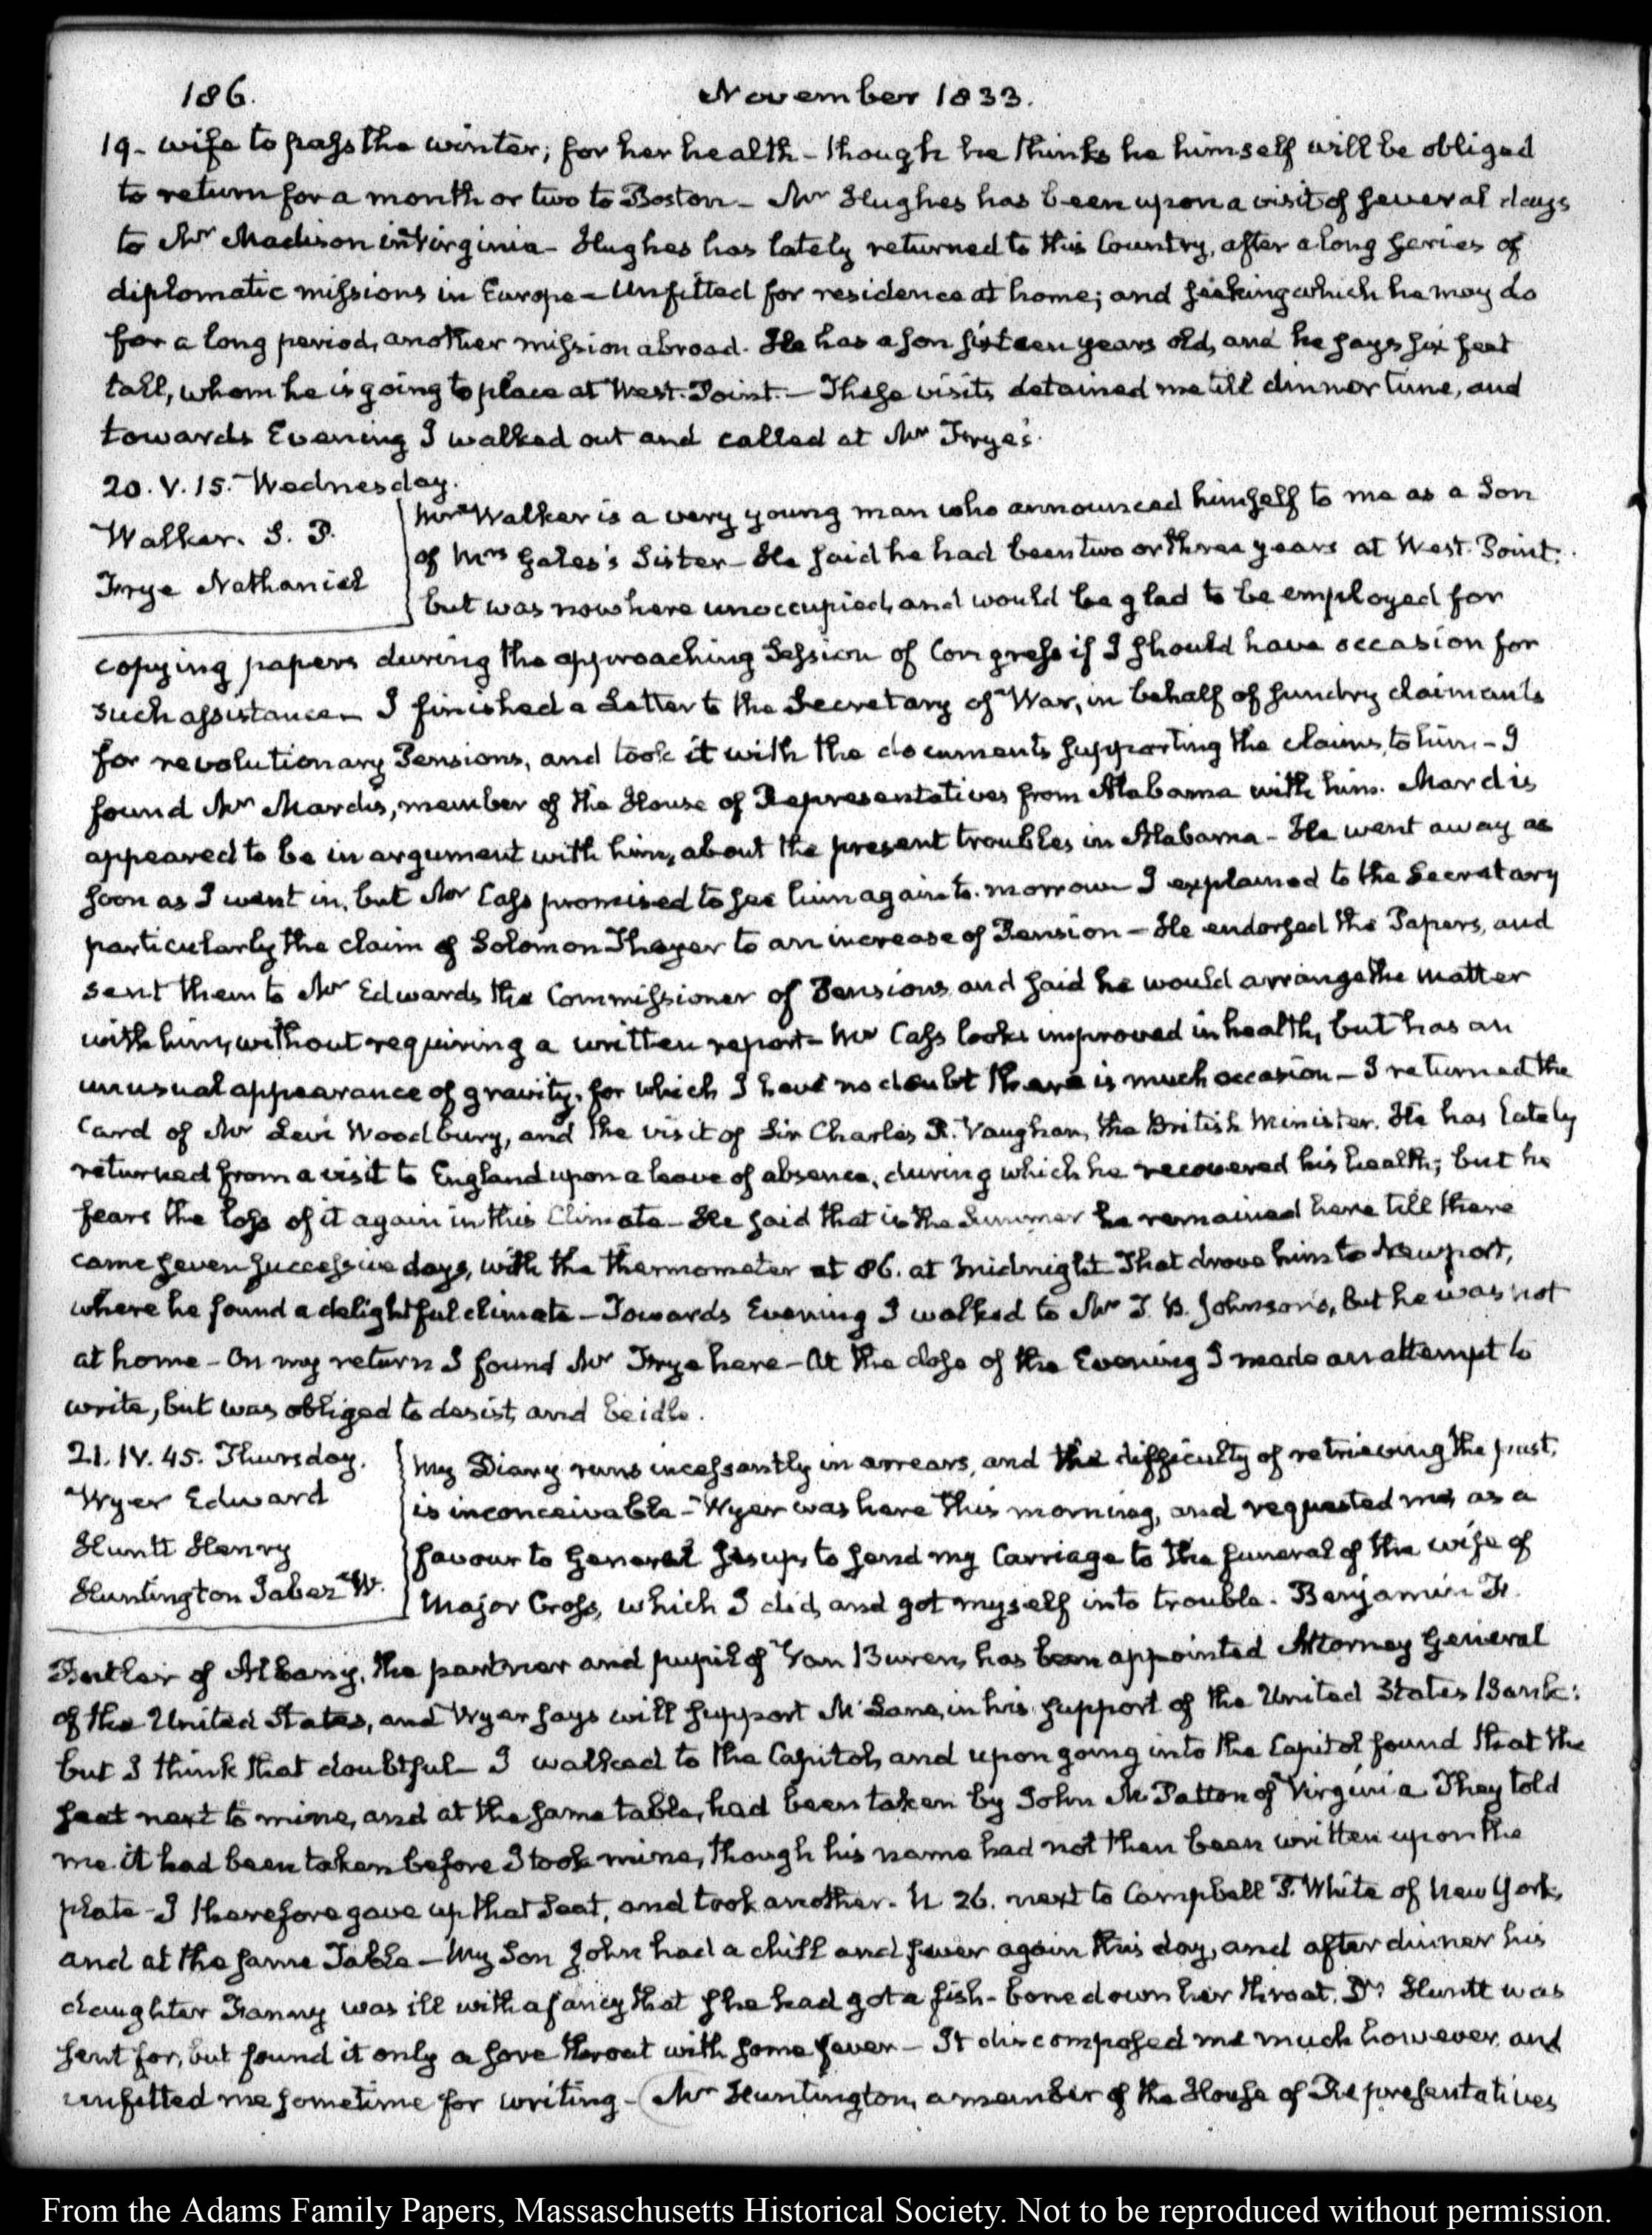 186.
November 1833.
19- wife to pass the winter; for her health - though he thinks he himself will be obliged
to return for a month or two to Boston - Mr Hughes has been upon a visit of several days
to Mr Madison in Virginia - Hughes has lately returned to this Country, after a long series of
diplomatic missions in Europe - Unfitted for residence at home; and seeking which he may do
for a long period, another mission abroad. He has a son sixteen years old, and he says six feet
tall, whom he is going to place at West-Point. - These visits detained me till dinner time, and
towards Evening I walked out and called at Mr Frye's.
20. V. 15. Wednesday.
Walker. S. P.
Frye Nathaniel
Mr Walker is a very young man who announced himself to me as a Son
of Mrs Gales's Sister - He said he had been two or three years at West-Point;
but was now here unoccupied, and would be glad to be employed for
copying papers during the approaching Session of Congress if I should have occasion for
such assistance - I finished a Letter to the Secretary of War, in behalf of sundry claimants
for revolutionary Pensions, and took it with the documents supporting the claims, to him - I
found Mr Mardis, member of the House of Representatives from Alabama with him. Mardis
appeared to be in argument with him, about the present troubles in Alabama - He went away as
soon as I went in, but Mr Cass promised to see him again to-morrow - I explained to the Secretary
particularly the claim of Solomon Thayer to an increase of Pension - He endorsed the Papers, and
sent them to Mr Edwards the Commissioner of Pensions and said he would arrange the matter
with him, without requiring a written report - Mr Cass looks improved in health, but has an
unusual appearance of gravity, for which I have no doubt there is much occasion - I returned the
Card of Mr Levi Woodbury, and the visit of Sir Charles R. Vaughan, the British Minister. He has lately
returned from a visit to England upon a leave of absence, during which he recovered his health; but he
fears the loss of it again in this Climate - He said that in the Summer he remained here till there
came seven successive days, with the thermometer at 86. at midnight - That drove him to Newport,
where he found a delightful climate - Towards Evening I walked to Mr T. B. Johnson's, but he was not
at home - On my return I found Mr Frye here - At the close of the Evening I made an attempt to
write, but was obliged to desist, and be idle.
21. IV. 45. Thursday.
Wyer Edward
Huntt Henry
Huntington Jabez W.
My Diary runs incessantly in arrears, and the difficulty of retrieving the past,
is inconceivable - Wyer was here this morning, and requested me, as a
favour to General Jesup, to send my Carriage to the funeral of the wife of
Major Cross, which I did, and got myself into trouble. Benjamin F.
Butler of Albany, the partner and pupil of Van Buren, has been appointed Attorney General
of the United States, and Wyer says will support McLane, in his support of the United States Bank:
but I think that doubtful - I walked to the Capitol, and upon going into the Capitol found that the
seat next to mine, and at the same table, had been taken by John M. Patton of Virginia They told
me it had been taken before I took mine, though his name had not then been written upon the
plate - I therefore gave up that Seat, and took another. N 26. next to Campbell P. White of New York,
and at the same Table - My Son John had a chill and fever again this day, and after dinner his
daughter Fanny was ill with a fancy that she had got a fish-bone down her throat. Dr Huntt was
sent for, but found it only a sore throat with some fever - It discomposed me much however and
unfitted me sometime for writing - Mr Huntington, a member of the House of Representatives
From the Adams Family Papers, Massachusetts Historical Society. Not to be reproduced without permission.